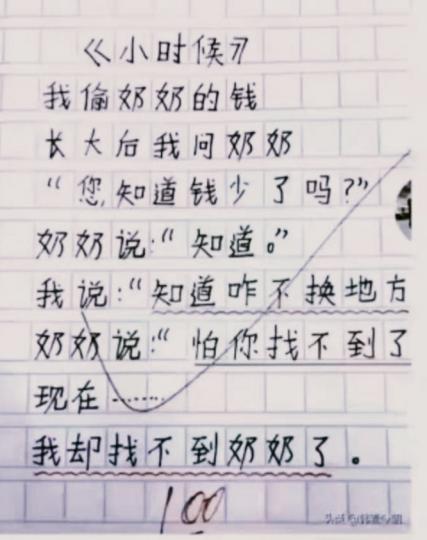 《小时候》
我偷奶奶的钱
长大后我问奶奶
“您,知道钱少了吗?”
奶奶说:“知道。”
我说:“知道咋不换地方
奶奶说:“怕你找不到了
现在……
我却找不到奶奶了。
100